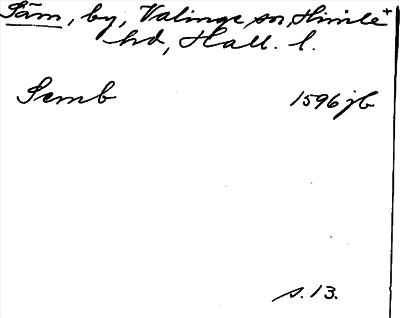 Säm, by, Valinge sn, Himle+
hd, Hall. l.
Semb 1596 jb
s. 13.